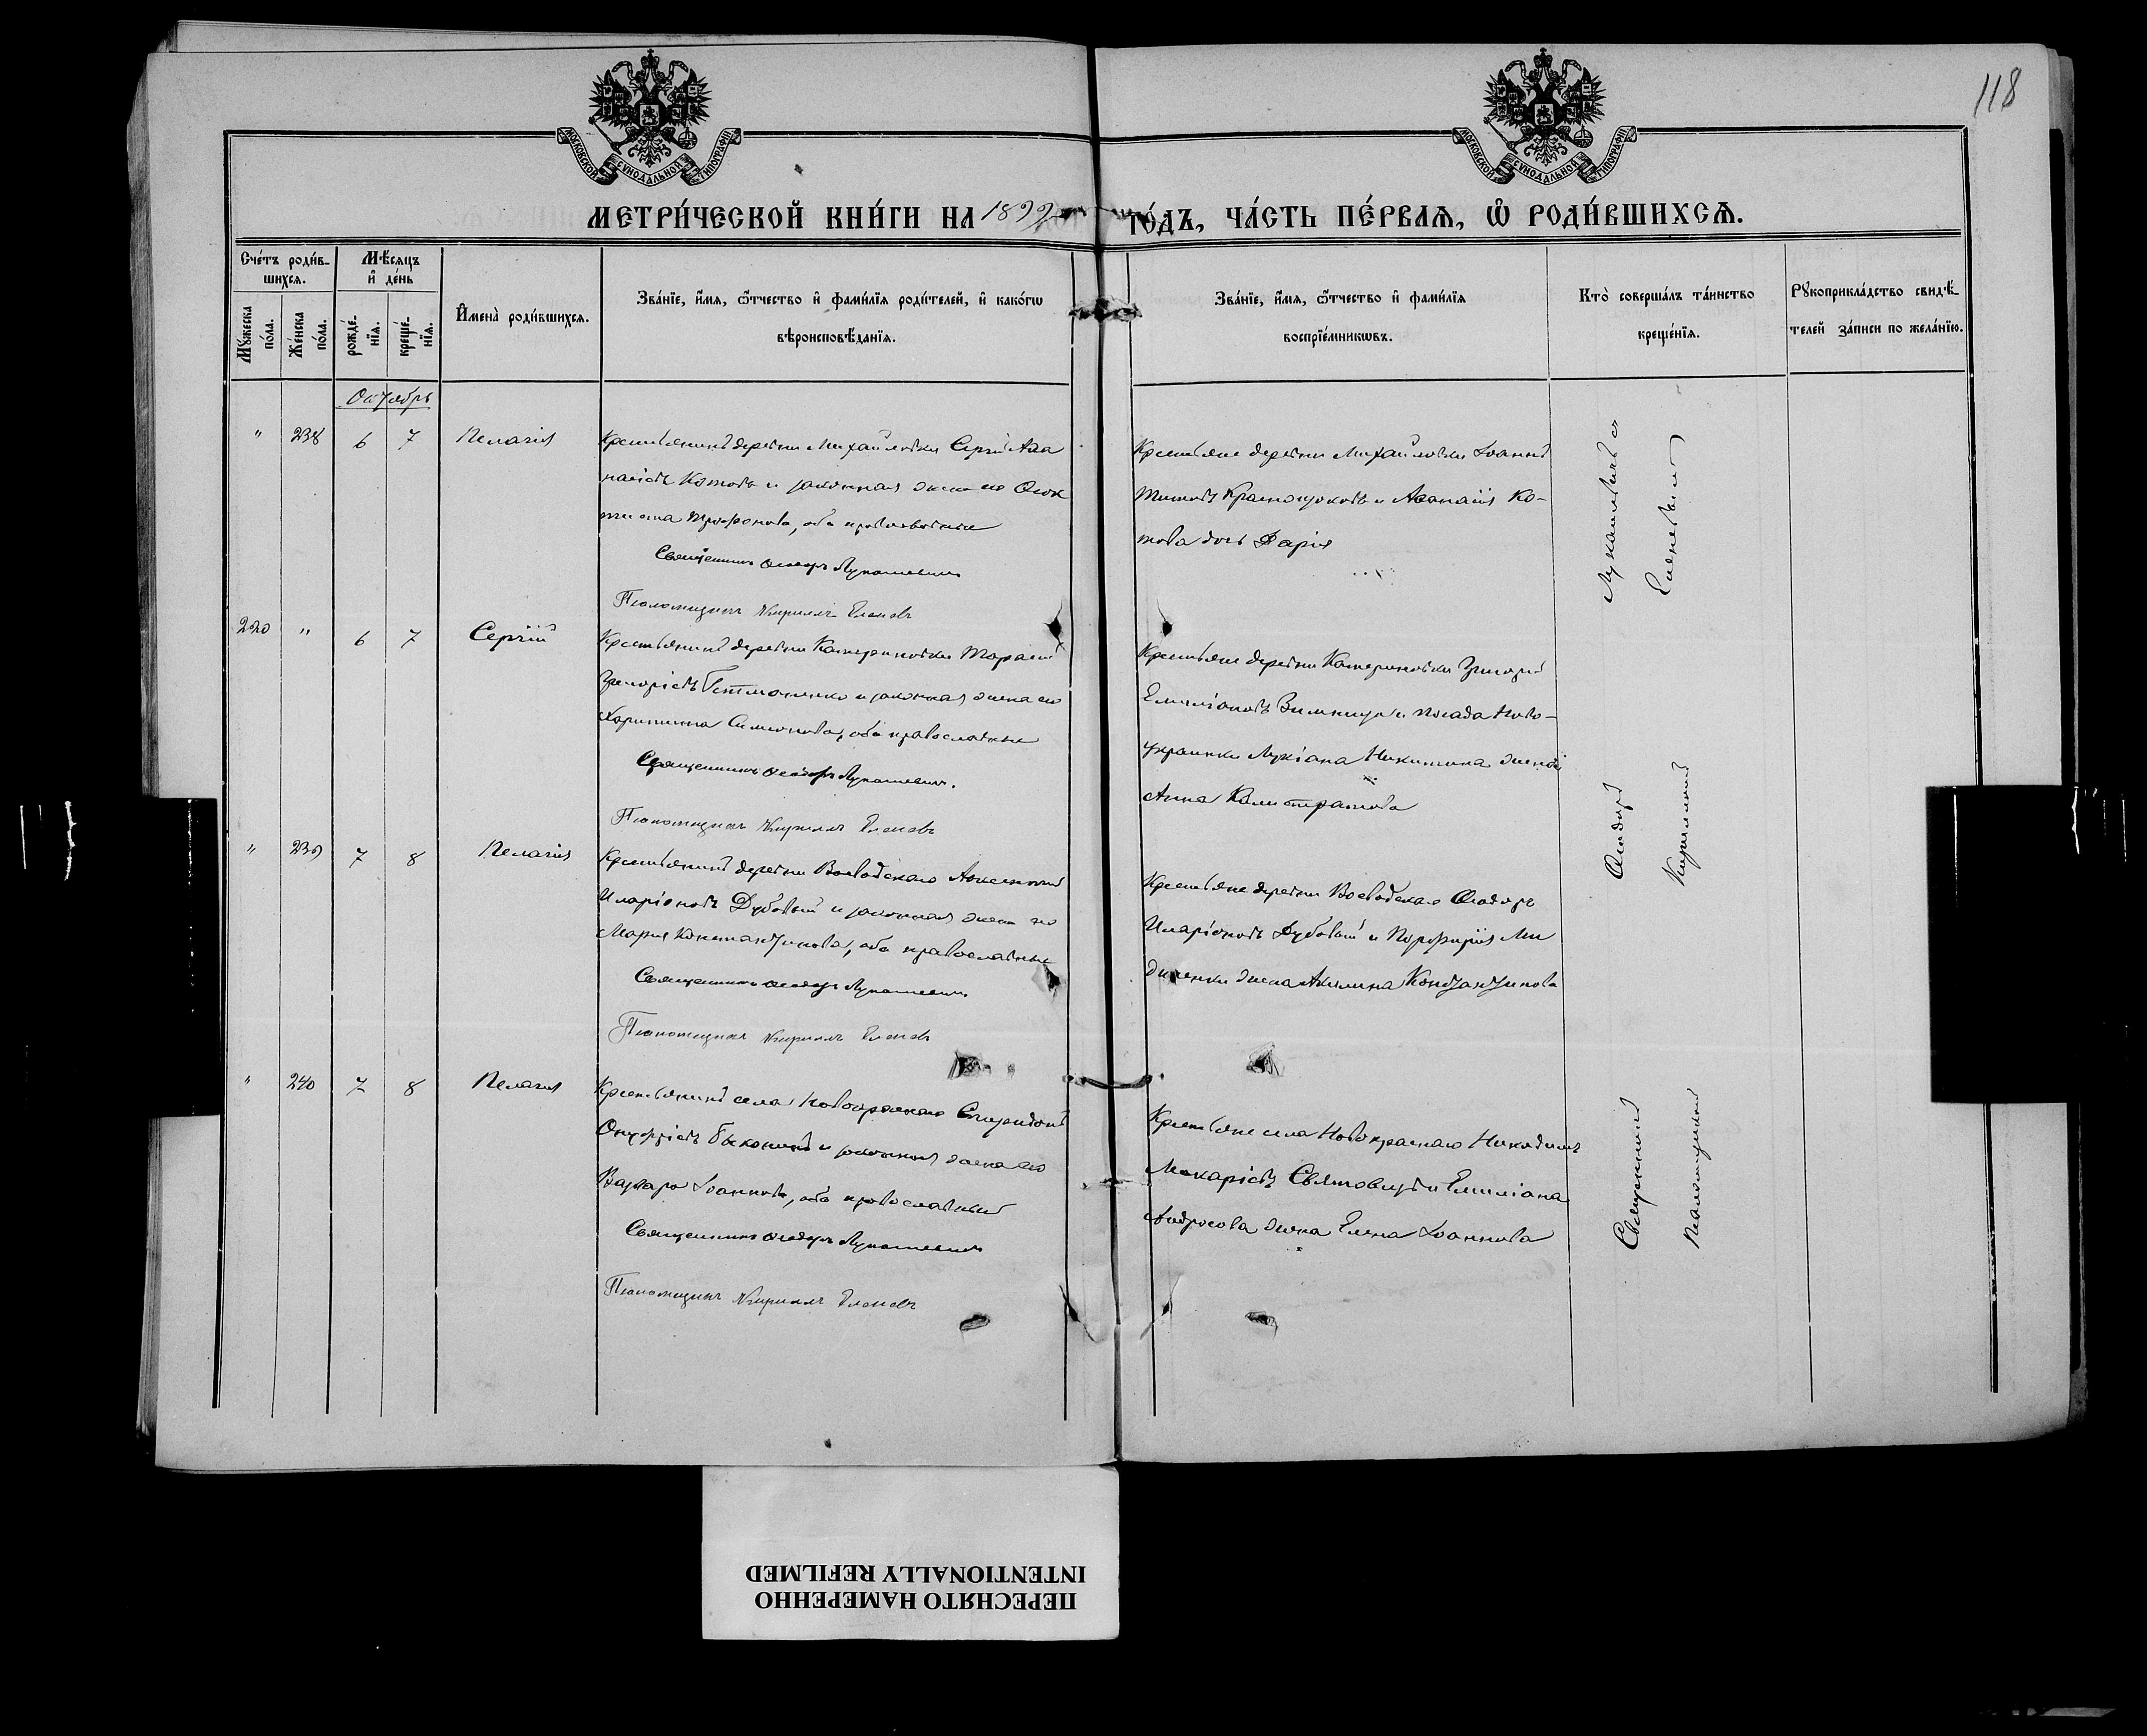 118
МОСКОВСКОЙ СУНОДАЛЬНОЙ ТИПОГРАФІИ
МОСКОВСКОЙ СУНОДАЛЬНОЙ ТИПОГРАФІИ
МЕТРИ́ЧЕСКОЙ КНИ́ГИ НА 1899 ГО́ДЪ, ЧА́СТЬ ПЕ́РВАѦ, Ѡ РОДИ́ВШИХСѦ.
Сче́тъ роди́в-
шихсѧ.
Мѣ́сѧцъ
и҆ де́нь
Мꙋ́жеска по́ла.
Же́нска по́ла.
рожде́-
нїѧ.
креще́-
нїѧ.
И҆мена̀ роди́вшихсѧ.
Зва́нїе, и҆́мѧ, ѻ҆́тчество и҆ фами́лїѧ роди́телей, и҆ како́гѡ
вѣроисповѣ́данїѧ.
Зва́нїе, и҆́мѧ, ѻ҆́тчество и҆ фами́лїѧ
воспрїе́мникѡвъ.
Кто̀ соверша́лъ та́инство
креще́нїѧ.
Рꙋкоприкла́дство свидѣ́-
телей за́писи по жела́нїю.
Октябрь
" 238 6 7 Пелагія
Крестьянинъ деревни Михайловки Сергій Аѳа
насіевъ Котовъ и законная жена его Ѳеок
тиста Трофимова, оба православные
Священникъ Ѳеодоръ Лукашевичъ
Псаломщикъ Кириллъ Еленевъ
Крестьяне деревни Михайловки Іоаннъ
Титовъ Краснощоковъ и Аѳанасія Ко-
това дочь Дарія
220 " 6 7 Сергій
Крестьянинъ деревни Катериновки Тарасій
Григоріевъ Гетманенко и законная жена его
Харитина Симеонова, оба православные
Священникъ Ѳеодоръ Лукашевичъ.
Псаломщикъ Кириллъ Еленевъ
Крестьяне деревни Катериновки Григорій
Емиліановъ и посада Ново-
украинки Лукіана Никитина жена
Анна Калистратова
" 239 7 8 Пелагія
Крестьянинъ деревни Воеводскаго Авксентій
Иларіоновъ Дубовый и законная жена его
Марія Константинова, оба православные
Священникъ Ѳеодоръ Лукашевичъ
Псаломщикъ Кириллъ Еленевъ
Крестьяне деревни Воеводскаго Ѳеодоръ
Иларіоновъ Дубовый и Порфирія
жена Акилина Константинова
" 240 7 8 Пелагія
Крестьянинъ села Новокраснаго Спиридонъ
Онуфріевъ и законная жена его
Варвара Іоаннова, оба православные
Священникъ Ѳеодоръ Лукашевичъ
Псаломщикъ Кириллъ Еленевъ
Крестьяне села Новокраснаго Никодимъ
Макаріевъ и Емиліана
Андросова жена Елена Іоаннова
Священникъ Ѳеодоръ Лукашевичъ съ
Псаломщикомъ Кирилломъ Еленевымъ
ПЕРЕСНЯТО НАМЕРЕННО
INTENTIONALLY REFILMED